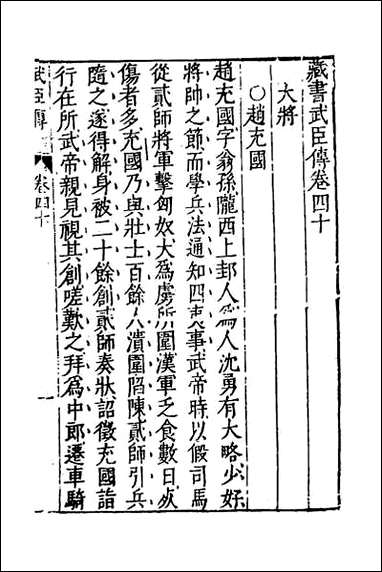 藏書武臣傳卷四十
大將
○趙充國
趙充國字翁孫隴西上邽人爲人沈勇有大略少好
將帥之節而學兵法通知四夷事武帝時以假司馬
從貳師將軍擊匈奴大爲虜所圍漢軍乏食數日死
傷者多充國乃與壯士百餘人潰圍陷陳貳師引兵
隨之遂得解身被二十餘創貳師奏狀詔徵充國詣
行在所武帝親見視其創嗟歎之拜爲中郎遷車騎
武臣傳 卷四十